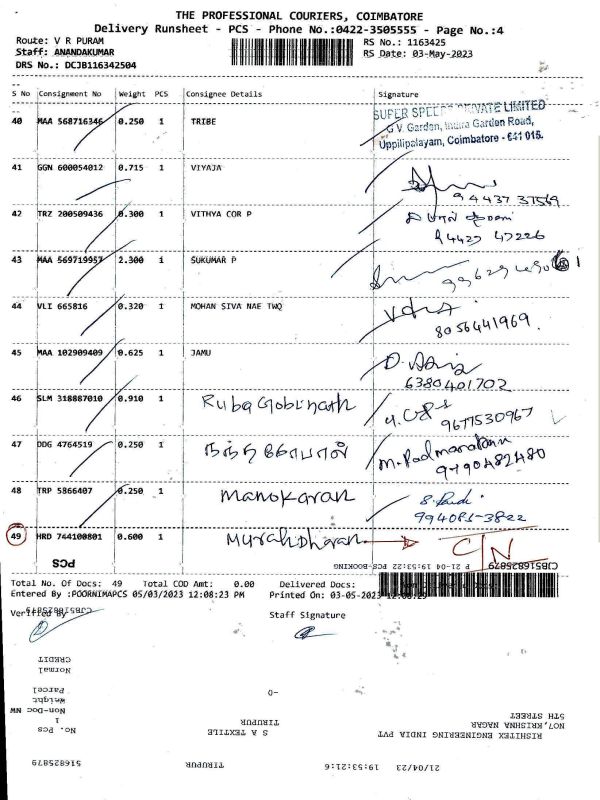 THE PROFESSIONAL COURIERS, COIMBATORE
Delivery Runsheet - PCS - Phone No.:0422-3505555 - Page No.:4
Route: V R PURAM
RS No.: 1163425
Staff: ANANDAKUMAR
RS Date: 03-May-2023
DRS No.: DCJB116342504
S No Consignment No Weight PCS Consignee Details Signature
40 MAA 568716346 0.250 1 TRIBE
SUPER SPEEDS PRIVATE LIMITED
G V. Garden, Indira Garden Road,
Uppilipalayam, Coimbatore - 641 015.
41 GGN 600054012 0.715 1 VIYAJA
94437 37569
42 TRZ 200509436 0.300 1 VITHYA COR P
94427 47226
43 MAA 569719957 2.300 1 SUKUMAR P
44 VLI 665816 0.320 1 MOHAN SIVA NAE TWO
8056441969.
45 MAA 102909409 0.625 1 JAMU
6380401702
46 SLM 318887010 0.910 1 Ruba Gobinath
9677530967
47 DDG 4764519 0.250 1 நந்தகோபால்
M. Padmanaban
9790482480
48 TRP 5866407 0.250 1 Manokaran
994081-3822
49 HRD 744100801 0.600 1 Muralidharan C/N
PCS
CJB516825879 P 21-04 19:53:22 PCS-BOOKING
Total No. Of Docs: 49 Total COD Amt: 0.00 Delivered Docs:
Entered By :POORNIMAPCS 05/03/2023 12:08:23 PM Printed On: 03-05-2023 12:08:29
Verified By
CJB516825879
Staff Signature
CREDIT
Normal
Parcel
Weight
Non-Doc NW
1
No. of Pcs
-0
TIRUPUR
S A TEXTILE
5TH STREET
NO7,KRISHNA NAGAR
RISHITEX ENGINEERING INDIA PVT
516825879
TIRUPUR
21/04/23 19:53:21:6